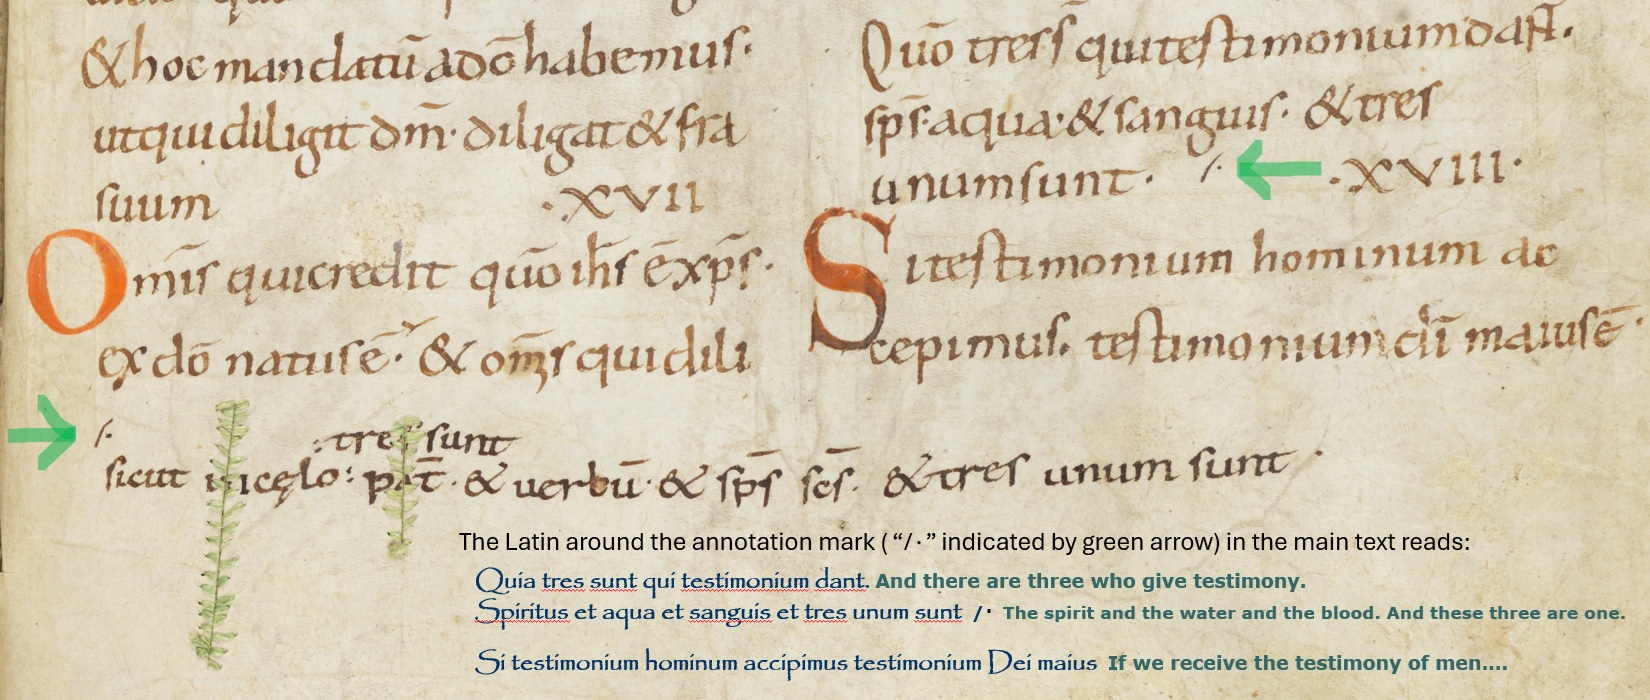 & hoc mandatū a dō habemus.
ut qui diligit dm̄. diligat & fra
suum .XVII
Omīs qui credit quō ih̄s ē xp̄s.
ex dō natus ē. & om̄s qui dili
Quō tres s̄ qui testimonium dant.
sp̄s. aqua. & sanguis. & tres
unum sunt. /. .XVIII.
Si testimonium hominum ac
cepimus. testimonium dī maius ē.
/. :tres sunt
sicut in cęlo: pat̄. & uerbū. & sp̄s sc̄s. & tres unum sunt.
The Latin around the annotation mark ( “/·” indicated by green arrow) in the main text reads:
Quia tres sunt qui testimonium dant. And there are three who give testimony.
Spiritus et aqua et sanguis et tres unum sunt /· The spirit and the water and the blood. And these three are one.
Si testimonium hominum accipimus testimonium Dei maius If we receive the testimony of men....